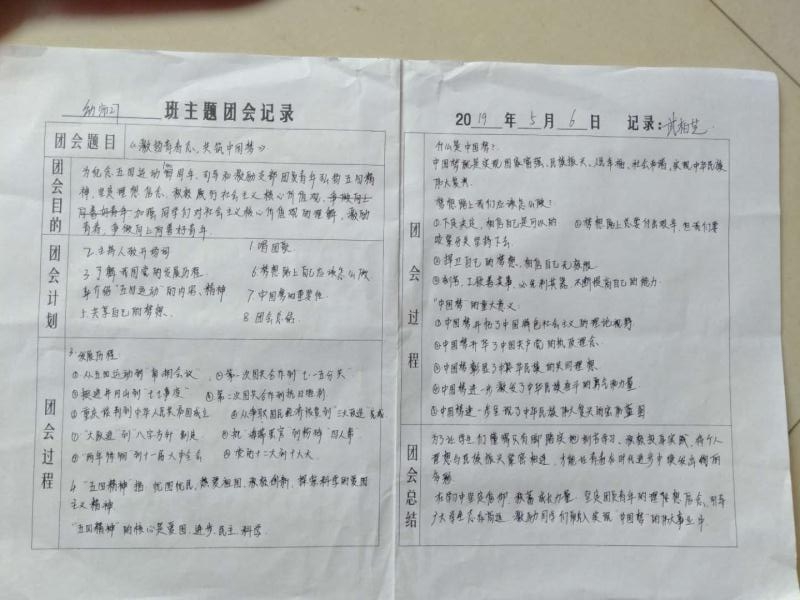 班主题团会记录
团会题目
《激扬青春志、共筑中国梦》
团会目的
为纪念五四运动100周年,引导和激励支部团员青年弘扬五四精
神,坚定理想信念,积极践行社会主义核心价值观,争做向上
向善好青年,加强同学们对社会主义核心价值观的理解,激励
青春,争做向上向善好青年。
团会计划
1.唱团歌
2.主持人致开场词
3.了解我国党的发展历程
4.介绍“五四运动”的内容、精神
5.共享自己的梦想
6.梦想路上自己应该怎么做
7.中国梦的重要性
8.团会总结
团会过程
3.发展历程
①从五四运动到“南湖会议”
②第一次国共合作到七一五分共”
③挺进井冈山到“七七事变”
④第二次国共合作到抗日胜利
⑤重庆谈判到中华人民共和国成立
⑥从争取国民经济恢复到“三大改造”完成
⑦“大跃进”到“八字方针”制定
⑨“两年徘徊”到十一届六中全会
⑩党的十二大到十九大
4.“五四精神”指:忧国忧民,热爱祖国,积极创新,探索科学的爱国
主义精神
“五四精神”的核心是爱国、进步、民主、科学
2019年5月6日 记录:
团会过程
什么是中国梦?
中国梦就是实现国家富强、民族振兴、人民幸福、社会和谐,实现中华民族
伟大复兴
梦想路上我们应该怎么做?
①下定决心,相信自己是可以的
②梦想路上总要付出艰辛,但我们要
坚持下去
③捍卫自己的梦想,相信自己无极限
④俗话:工欲善其事,必先利其器,不断提高自己的能力
“中国梦”的重大意义:
①中国梦开拓了中国特色社会主义的理论视野
②中国梦升华了中国共产党的执政理念
③中国梦彰显了中华民族的共同理想
④中国梦进一步激发了中华民族奋斗的勇气和力量
⑤中国梦进一步呈现了中华民族伟大复兴的宏伟蓝图
团会总结
为了让学生们懂得只有脚踏实地刻苦学习、积极投身实践,将个人
理想与民族振兴紧密相连,才能让青春在时代进步中焕发出绚丽的
光彩
坚定团员青年的理想信念,引导
激励同学们融入实现“中国梦”的伟大事业中